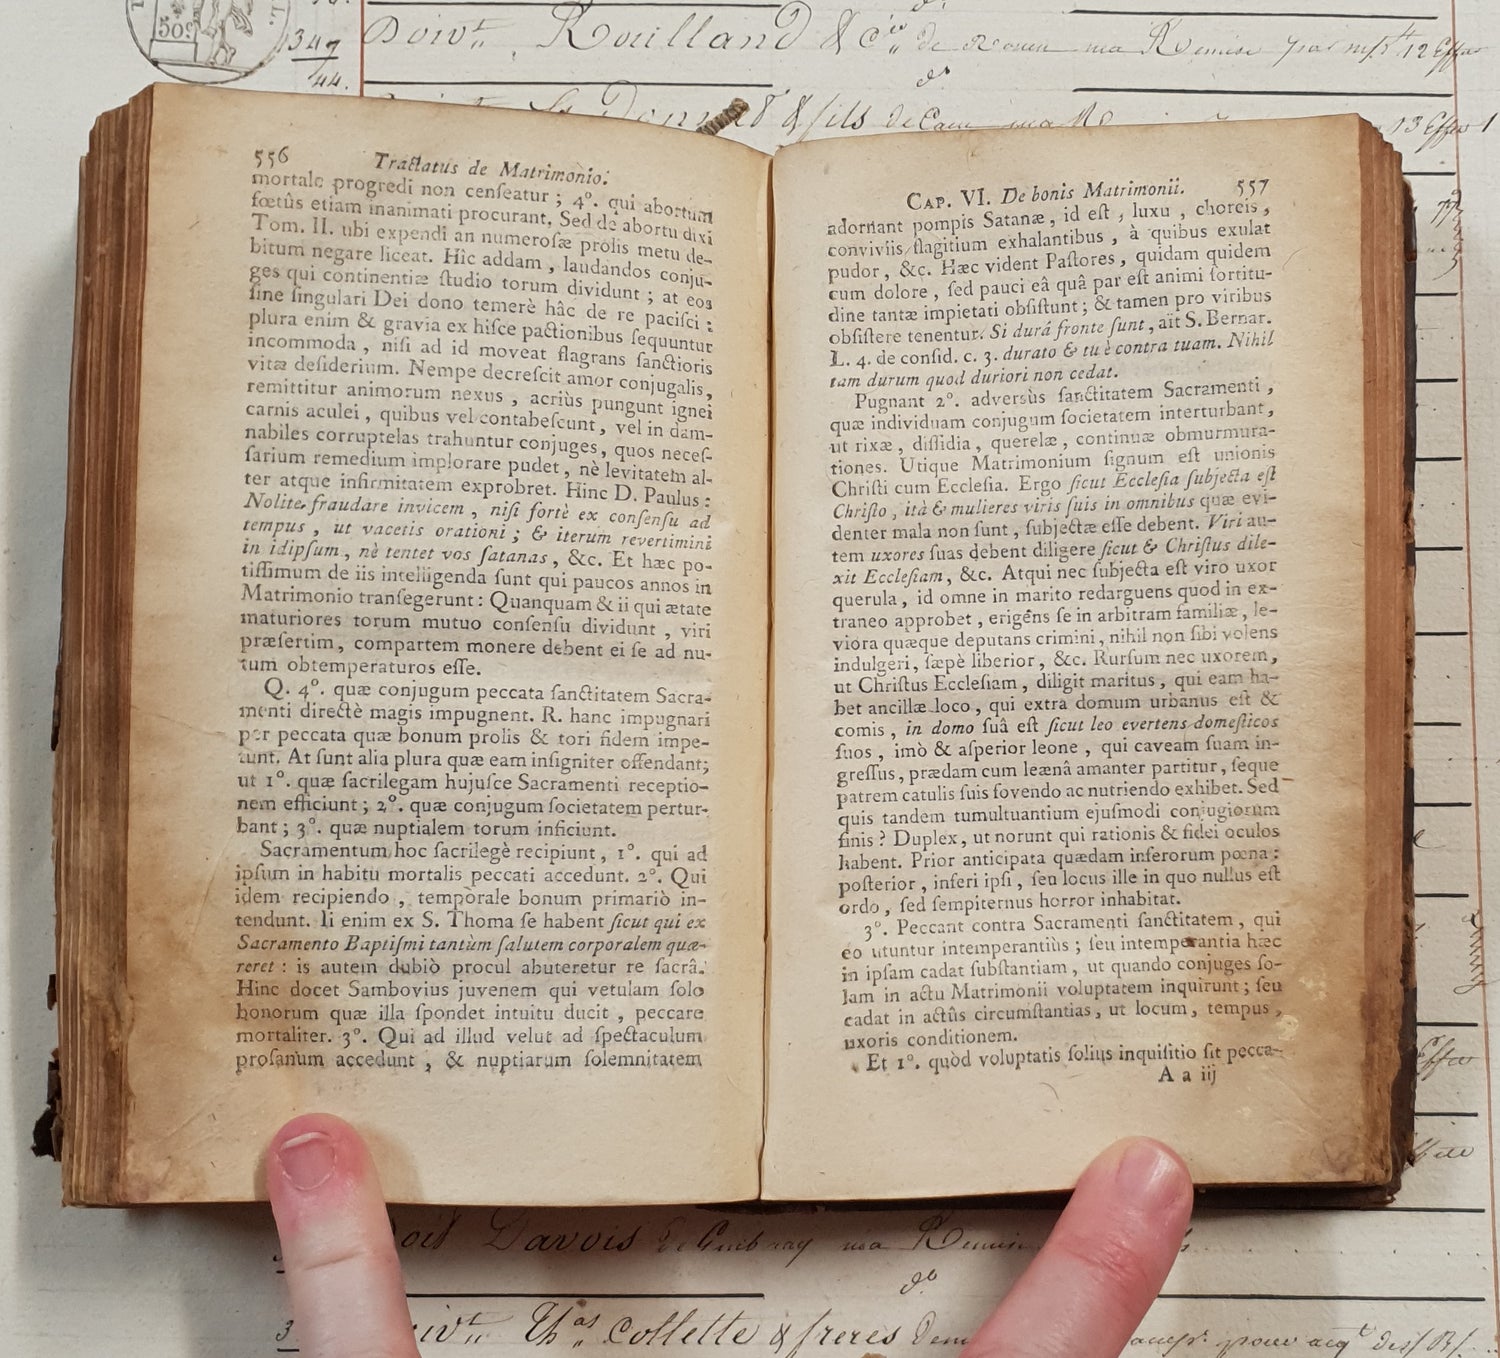 50c
1347
44.
Doivt. Rouilland & Cie. de Rouen ma Remise
& fils de Caen
556 Tractatus de Matrimonio.
mortale progredi non cenſeatur ; 4°. qui abortum
fœtûs etiam inanimati procurant. Sed de abortu dixi
Tom. II. ubi expendi an numeroſæ prolis metu de-
bitum negare liceat. Hîc addam , laudandos conju-
ges qui continentiæ ſtudio torum dividunt ; at eos
ſine ſingulari Dei dono temerè hâc de re paciſci :
plura enim & gravia ex hiſce pactionibus ſequuntur
incommoda , niſi ad id moveat flagrans ſanctioris
vitæ deſiderium. Nempe decreſcit amor conjugalis,
remittitur animorum nexus , acriùs pungunt ignei
carnis aculei , quibus vel contabeſcunt , vel in dam-
nabiles corruptelas trahuntur conjuges, quos neceſ-
ſarium remedium implorare pudet , nè levitatem al-
ter atque infirmitatem exprobret. Hinc D. Paulus :
Nolite fraudare invicem , niſi fortè ex conſenſu ad
tempus , ut vacetis orationi ; & iterum revertimini
in idipſum , nè tentet vos ſatanas , &c. Et hæc po-
tiſſimum de iis intelligenda ſunt qui paucos annos in
Matrimonio tranſegerunt : Quanquam & ii qui ætate
maturiores torum mutuo conſenſu dividunt , viri
præſertim , compartem monere debent ei ſe ad nu-
tum obtemperaturos eſſe.
Q. 4°. quæ conjugum peccata ſanctitatem Sacra-
menti directè magis impugnent. R. hanc impugnari
per peccata quæ bonum prolis & tori fidem impe-
tunt. At ſunt alia plura quæ eam inſigniter offendant;
ut 1°. quæ ſacrilegam hujuſce Sacramenti receptio-
nem efficiunt ; 2°. quæ conjugum ſocietatem pertur-
bant ; 3°. quæ nuptialem torum inficiunt.
Sacramentum hoc ſacrilegè recipiunt , 1°. qui ad
ipſum in habitu mortalis peccati accedunt. 2°. Qui
idem recipiendo , temporale bonum primariò in-
tendunt. Ii enim ex S. Thoma ſe habent ſicut qui ex
Sacramento Baptiſmi tantùm ſalutem corporalem quæ-
reret : is autem dubiò procul abuteretur re ſacrâ.
Hinc docet Sambovius juvenem qui vetulam ſolo
honorum quæ illa ſpondet intuitu ducit , peccare
mortaliter. 3°. Qui ad illud velut ad ſpectaculum
profanum accedunt , & nuptiarum ſolemnitatem
CAP. VI. De bonis Matrimonii. 557
adornant pompis Satanæ, id eſt , luxu , choreis ,
conviviis flagitium exhalantibus , à quibus exulat
pudor , &c. Hæc vident Paſtores , quidam quidem
cum dolore , ſed pauci eâ quâ par eſt animi fortitu-
dine tantæ impietati obſiſtunt ; & tamen pro viribus
obſiſtere tenentur. Si durâ fronte ſunt , aït S. Bernar.
L. 4. de conſid. c. 3. durato & tu è contra tuam. Nihil
tam durum quod duriori non cedat.
Pugnant 2°. adversùs ſanctitatem Sacramenti ,
quæ individuam conjugum ſocietatem interturbant ,
ut rixæ , diſſidia , querelæ , continuæ obmurmura-
tiones. Utique Matrimonium ſignum eſt unionis
Chriſti cum Eccleſia. Ergo ſicut Eccleſia ſubjecta eſt
Chriſto , ità & mulieres viris ſuis in omnibus quæ evi-
denter mala non ſunt , ſubjectæ eſſe debent. Viri au-
tem uxores ſuas debent diligere ſicut & Chriſtus dile-
xit Eccleſiam , &c. Atqui nec ſubjecta eſt viro uxor
querula , id omne in marito redarguens quod in ex-
traneo approbet , erigens ſe in arbitram familiæ , le-
viora quæque deputans crimini , nihil non ſibi volens
indulgeri , ſæpè liberior , &c. Rurſum nec uxorem ,
ut Chriſtus Eccleſiam , diligit maritus , qui eam ha-
bet ancillæ loco , qui extra domum urbanus eſt &
comis , in domo ſuâ eſt ſicut leo evertens domeſticos
ſuos , imò & aſperior leone , qui caveam ſuam in-
greſſus , prædam cum leænâ amanter partitur , ſeque
patrem catulis ſuis fovendo ac nutriendo exhibet. Sed
quis tandem tumultuantium ejuſmodi conjugiorum
finis ? Duplex , ut norunt qui rationis & fidei oculos
habent. Prior anticipata quædam inferorum pœna :
poſterior , inferi ipſi , ſeu locus ille in quo nullus eſt
ordo , ſed ſempiternus horror inhabitat.
3°. Peccant contra Sacramenti ſanctitatem , qui
eo utuntur intemperantiùs ; ſeu intemperantia hæc
in ipſam cadat ſubſtantiam , ut quando conjuges ſo-
lam in actu Matrimonii voluptatem inquirunt ; ſeu
cadat in actûs circumſtantias , ut locum , tempus ,
uxoris conditionem.
Et 1°. quòd voluptatis ſolius inquiſitio ſit pecca-
A a iij
Davois de ma Remise
do
Doivt. Thas. Collette & freres